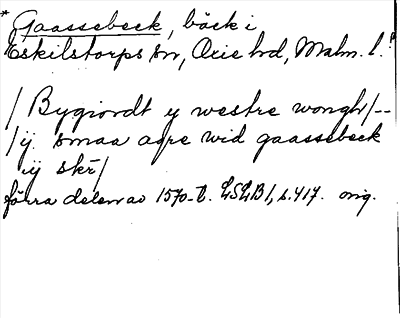 * Gaassebeck, bäck i
Eskilstorps sn, Oxie hd, Malm. l.
/ Bygiordt y westre wongh/--
/ ij. smaa agre wid gaassebeck
iij skr̄/
förra delen av 1570-t. LSLB 1, s. 417. orig.